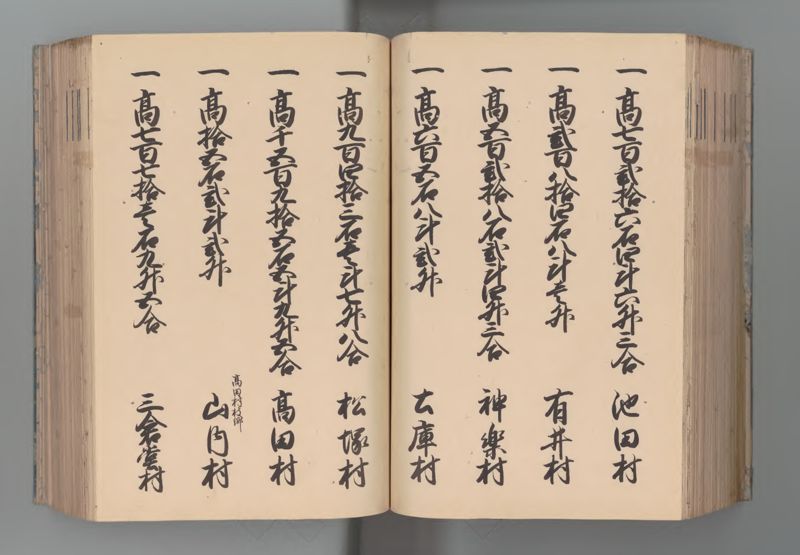 一高七百弐拾六石四斗六升三合 池田村
一高弐百八拾四石八斗壱升 有井村
一高五百弐拾八石弐斗四升三合 神楽村
一高六百五石八斗弐升 大庫村
一高九百四拾三石壱斗七升八合 松塚村
一高千五百九拾五石五斗九升五合 高田村
高田村枝郷
一高拾五石弐斗弐升 山内村
一高七百七拾壱石九升五合 三倉堂村